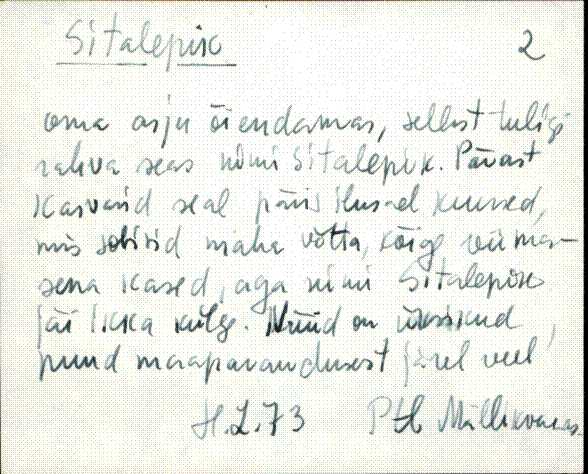 Sitalepik 2
oma asju õiendamas, sellest tuligi
rahva seas nimi Sitalepik. Pärast
kasvasid seal päris ilusad kuused,
mis sobisid maha võtta, kõige viima-
sena kased, aga nimi Sitalepik
jäi ikka külge. Nüüd on üksikud
puud maaparandusest järel veel
H.L.73 Ptl